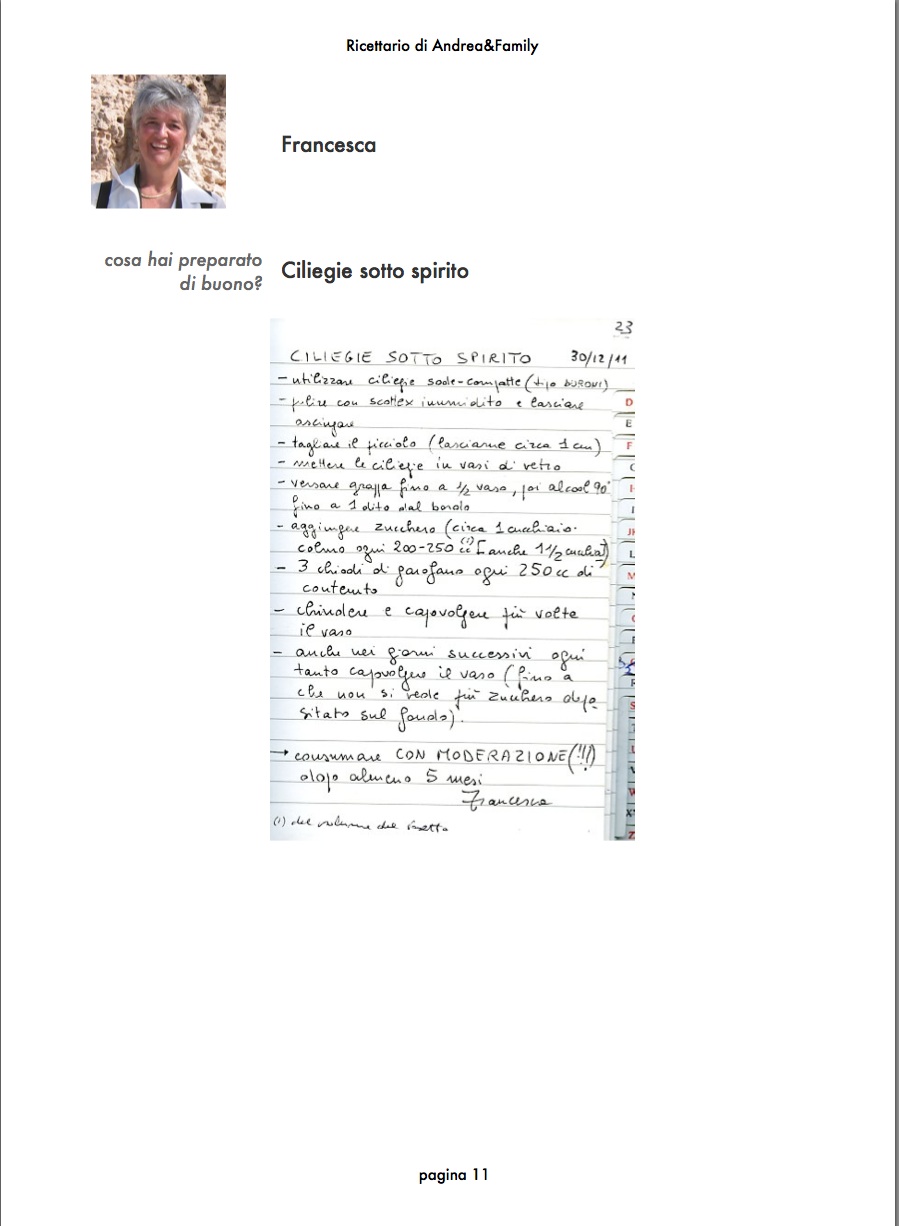 Ricettario di Andrea&Family
Francesca
cosa hai preparato
di buono?
Ciliegie sotto spirito
23
CILIEGIE SOTTO SPIRITO 30/12/11
- utilizzare ciliegie sode-compatte (tipo DURONI)
- pulire con scottex inumidito e lasciare
asciugare
- tagliare il picciolo (lasciarne circa 1 cm)
- mettere le ciliegie in vasi di vetro
- versare grappa fino a 1/2 vaso, poi alcool 90°
fino a 1 dito dal bordo
- aggiungere zucchero (circa 1 cucchiaio
colmo ogni 200-250 cc (1) [anche 1 1/2 cucchiai])
- 3 chiodi di garofano ogni 250 cc di
contenuto
- chiudere e capovolgere più volte
il vaso
- anche nei giorni successivi ogni
tanto capovolgere il vaso (fino a
che non si vede più zucchero depo
sitato sul fondo).
→ consumare CON MODERAZIONE (!!!)
dopo almeno 5 mesi
Francesca
(1) del volume del
D
E
F
L
M
R
S
V
W
Z
pagina 11